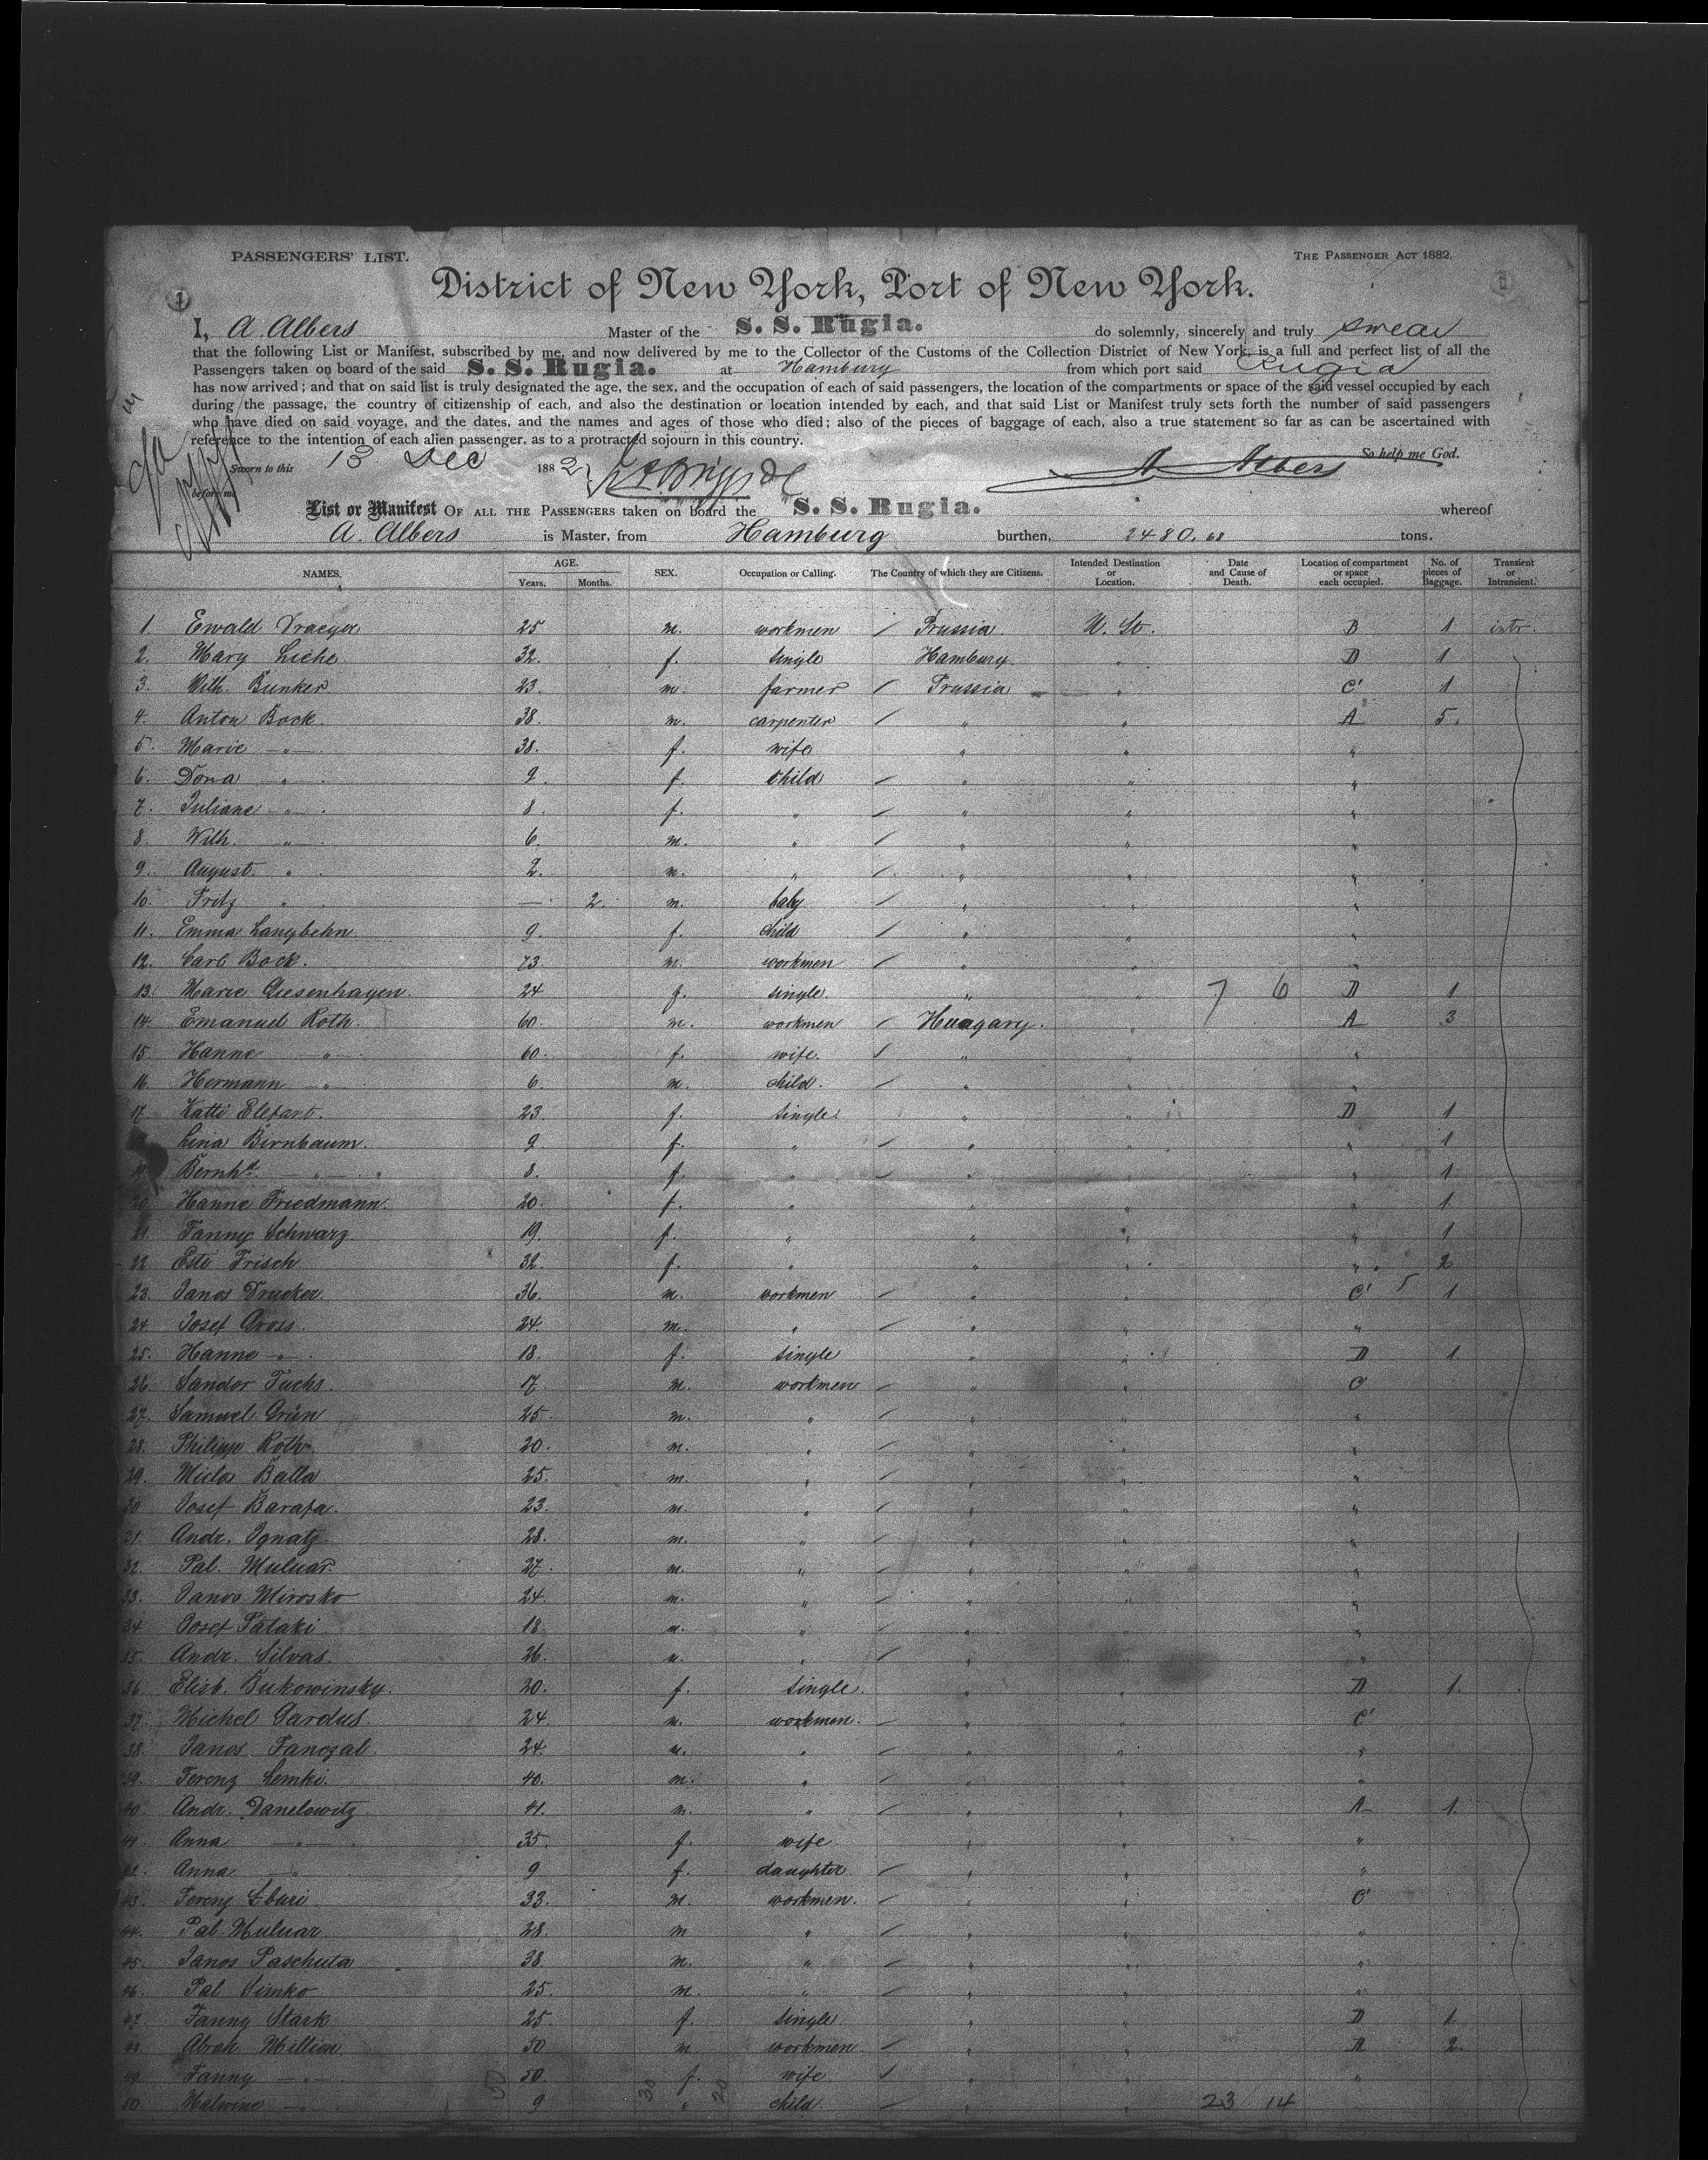 PASSENGERS' LIST.
THE PASSENGER ACT 1882.
District of New York, Port of New York.
1
I, A. Albers Master of the S. S. Rugia. do solemnly, sincerely and truly swear
that the following List or Manifest, subscribed by me, and now delivered by me to the Collector of the Customs of the Collection District of New York, is a full and perfect list of all the
Passengers taken on board of the said S. S. Rugia. at Hamburg from which port said Rugia
has now arrived; and that on said list is truly designated the age, the sex, and the occupation of each of said passengers, the location of the compartments or space of the said vessel occupied by each
during the passage, the country of citizenship of each, and also the destination or location intended by each, and that said List or Manifest truly sets forth the number of said passengers
who have died on said voyage, and the dates, and the names and ages of those who died; also of the pieces of baggage of each, also a true statement so far as can be ascertained with
reference to the intention of each alien passenger, as to a protracted sojourn in this country.
Sworn to this 13 Dec 1882 A. Albers So help me God.
before me
List or Manifest OF ALL THE PASSENGERS taken on board the S. S. Rugia. whereof
A. Albers is Master, from Hamburg burthen, 2480.68 tons.
NAMES. AGE. Years. Months. SEX. Occupation or Calling. The Country of which they are Citizens. Intended Destination or Location. Date and Cause of Death. Location of compartment or space each occupied. No. of pieces of Baggage. Transient or Intransient.
1. Ewald Draeger 25 m. workmen / Prussia U. St. D 1 intr.
2. Mary Liche 32. f. single Hamburg " D 1
3. Wilh. Bunker 23. m. farmer / Prussia " C' 1
4. Anton Bock. 38. m. carpenter / " " A 5.
5. Marie " 38. f. wife " " "
6. Dona " 9. f. child / " " "
7. Juliane " 8. f. " / " " "
8. Wilh. " 6. m. " / " " "
9. August. " 2. m. " / " " "
10. Fritz " — 2. m. baby / " "
11. Emma Langbehn. 9. f. child / " " "
12. Carl Bock. 73 m. workmen / " " "
13. Marie Giesenhagen. 24 f. single. " " 7 6 D 1
14. Emanuel Roth. 60. m. workmen / Hungary. " A 3
15. Hanne " 60. f. wife. / " " "
16. Hermann " 6. m. child. / " " "
17. Katti Elefant. 23 f. single " " D 1
Lina Birnbaum. 9 f. " / " " " 1
19. Bernhd. " 8. f. " / " " " 1
20. Hanne Friedmann. 20. f. " " " " 1
21. Fanny Schwarz 19. f. " " " " 1
22. Esti Frisch 32. f. " " " " 2
23. Janos Drucker. 36. m. workmen / " " C' 1
24. Josef Gross. 24. m. " / " " "
25. Hanne " 18. f. single " " D 1.
26. Sandor Fuchs. 17 m. workmen / " " C'
27. Samuel Grün 25. m. " / " " "
28. Philipp Roth. 20. m. " / " " "
29. Miclos Balla 25. m. " / " " "
30 Josef Barafa. 23. m. " / " " "
31. Andr. Ignatz. 28. m. " / " " "
32. Pal. Muluar. 27. m. " / " " "
33. Janos Mirosko 24. m. " / " " "
34 Josef Pataki 18. m. " / " " "
35. Andr. Silvas. 26. m. " / " " "
36 Elisb. Bukowinsky. 20. f. single. " " D 1.
37. Michel Gardus. 24. m. workmen. / " " C'
38. Janos Fanczal. 24. m. " / " " "
39. Ferenz Lemki. 40. m. " / " " "
40 Andr. Danelowitz 41. m. " / " " A 1.
41. Anna " 35. f. wife. " " "
42. Anna " 9 f. daughter / " " "
43. Ferenz 33. m. workmen. / " " C'
44. Pal. Muluar 28. m " / " "
45. Janos Paschuta 38. m. " / " " "
46. Pal Simko 25. m. " / " " "
47. Fanny Stark 25. f. single " " D 1
48. Abrah Million 50 m workmen / " " A 2.
49. Fanny " 50. f. wife / " " "
50. Malwine " 9 " child. / " " 23 14
50 30 20